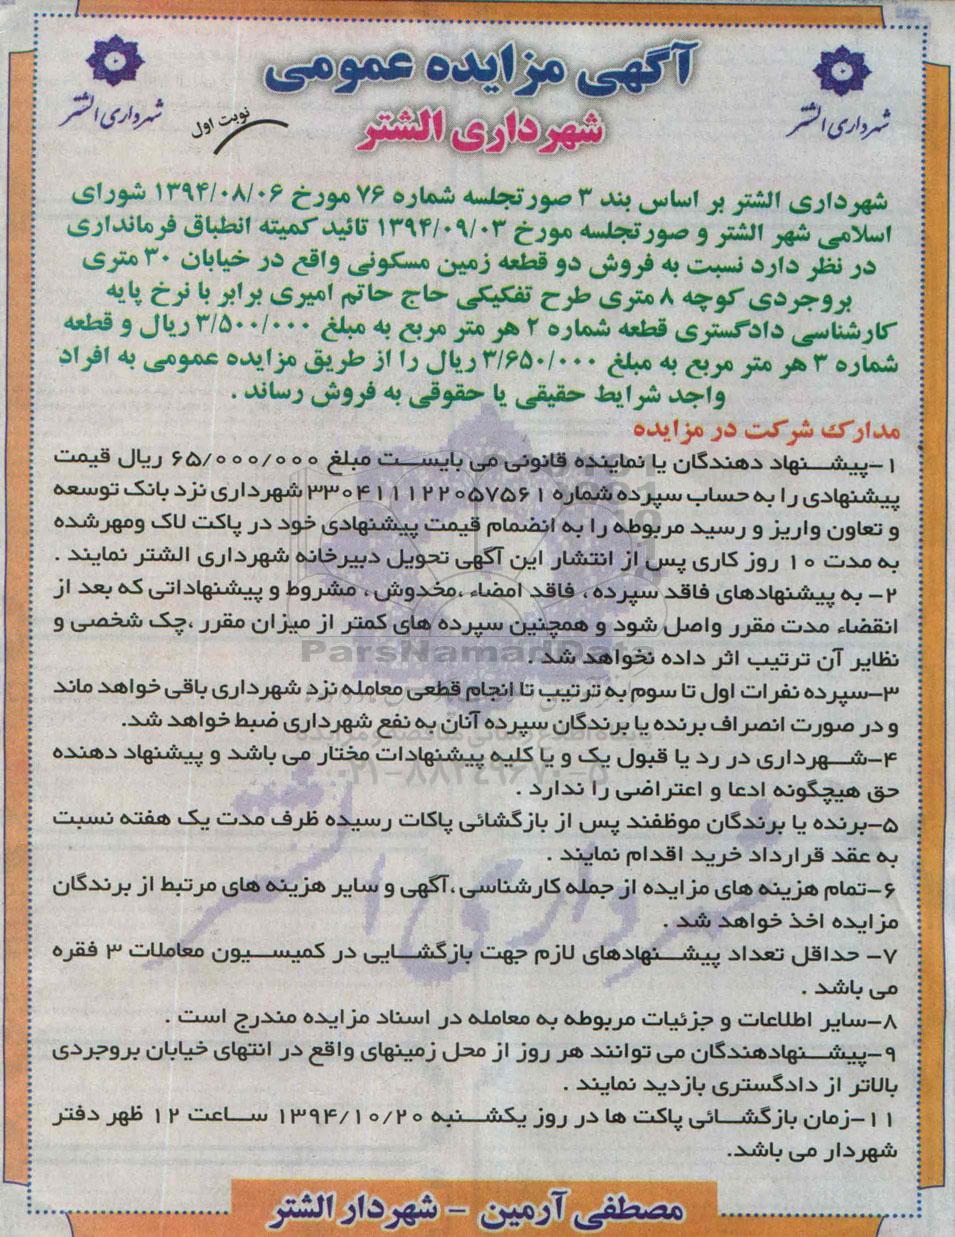 آگهی مزایده عمومی
شهرداری الشتر
شهرداری الشتر
نوبت اول
شهرداری الشتر
شهرداری الشتر بر اساس بند ۳ صورتجلسه شماره ۷۶ مورخ ۱۳۹۴/۰۸/۰۶ شورای
اسلامی شهر الشتر و صورتجلسه مورخ ۱۳۹۴/۰۹/۰۳ تائید کمیته انطباق فرمانداری
در نظر دارد نسبت به فروش دو قطعه زمین مسکونی واقع در خیابان ۳۰ متری
بروجردی کوچه ۸ متری طرح تفکیکی حاج حاتم امیری برابر با نرخ پایه
کارشناسی دادگستری قطعه شماره ۲ هر متر مربع به مبلغ ۳/۵۰۰/۰۰۰ ریال و قطعه
شماره ۳ هر متر مربع به مبلغ ۳/۶۵۰/۰۰۰ ریال را از طریق مزایده عمومی به افراد
واجد شرایط حقیقی یا حقوقی به فروش رساند .
مدارک شرکت در مزایده
۱-پیشنهاد دهندگان یا نماینده قانونی می بایست مبلغ ۶۵/۰۰۰/۰۰۰ ریال قیمت
پیشنهادی را به حساب سپرده شماره ۳۳۰۴۱۱۱۲۲۰۵۷۵۶۱ شهرداری نزد بانک توسعه
و تعاون واریز و رسید مربوطه را به انضمام قیمت پیشنهادی خود در پاکت لاک ومهرشده
به مدت ۱۰ روز کاری پس از انتشار این آگهی تحویل دبیرخانه شهرداری الشتر نمایند .
۲- به پیشنهادهای فاقد سپرده، فاقد امضاء ،مخدوش ، مشروط و پیشنهاداتی که بعد از
انقضاء مدت مقرر واصل شود و همچنین سپرده های کمتر از میزان مقرر ،چک شخصی و
نظایر آن ترتیب اثر داده نخواهد شد .
ParsNamadData
۳-سپرده نفرات اول تا سوم به ترتیب تا انجام قطعی معامله نزد شهرداری باقی خواهد ماند
و در صورت انصراف برنده یا برندگان سپرده آنان به نفع شهرداری ضبط خواهد شد.
۴-شهرداری در رد یا قبول یک و یا کلیه پیشنهادات مختار می باشد و پیشنهاد دهنده
۰۲۱-۸۸۳۴۹۶۷۰-۵
حق هیچگونه ادعا و اعتراضی را ندارد .
۵-برنده یا برندگان موظفند پس از بازگشائی پاکات رسیده ظرف مدت یک هفته نسبت
به عقد قرارداد خرید اقدام نمایند .
۶-تمام هزینه های مزایده از جمله کارشناسی ،آگهی و سایر هزینه های مرتبط از برندگان
مزایده اخذ خواهد شد .
شهرداری الشتر
۷- حداقل تعداد پیشنهادهای لازم جهت بازگشایی در کمیسیون معاملات ۳ فقره
می باشد .
۸-سایر اطلاعات و جزئیات مربوطه به معامله در اسناد مزایده مندرج است .
۹-پیشنهادهندگان می توانند هر روز از محل زمینهای واقع در انتهای خیابان بروجردی
بالاتر از دادگستری بازدید نمایند .
۱۱-زمان بازگشائی پاکت ها در روز یکشنبه ۱۳۹۴/۱۰/۲۰ ساعت ۱۲ ظهر دفتر
شهردار می باشد.
مصطفی آرمین - شهردار الشتر